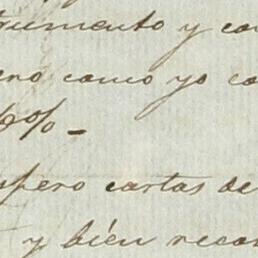 rumento y co
ero como yo co
6% -
spero cartas de
y bién reco